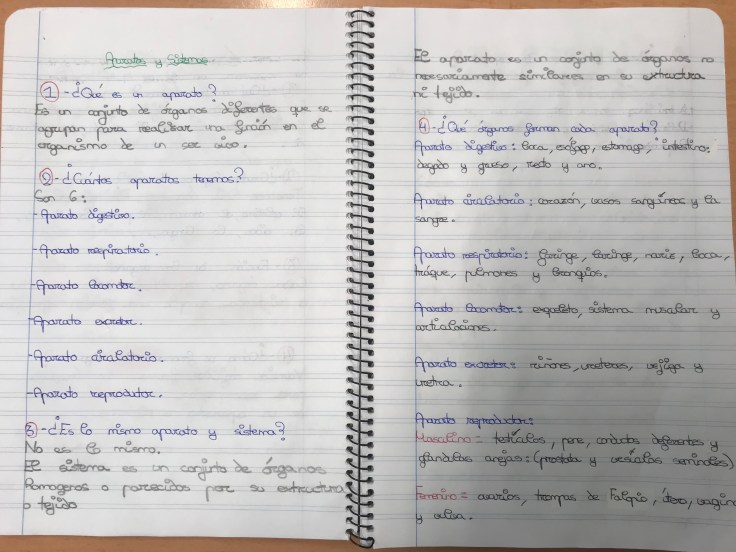 Aparatos y Sistemas
1 - ¿Qué es un aparato?
Es un conjunto de órganos diferentes que se
agrupan para realizar una función en el
organismo de un ser vivo.
2 - ¿Cuántos aparatos tenemos?
Son 6:
- Aparato digestivo.
- Aparato respiratorio.
- Aparato locomotor.
- Aparato excretor.
- Aparato circulatorio.
- Aparato reproductor.
3 - ¿Es lo mismo aparato y sistema?
No es lo mismo.
El sistema es un conjunto de órganos
homogeneos o parecidos por su estructura
o tejido
El aparato es un conjunto de órganos no
necesariamente similares en su estructura
ni tejido.
4 - ¿Qué órganos forman cada aparato?
Aparato digestivo: boca, esófago, estomago, intestino:
delgado y grueso, recto y ano.
Aparato circulatorio: corazón, vasos sanguíneos y la
sangre.
Aparato respiratorio: faringe, laringe, nariz, boca,
tráquea, pulmones y bronquios.
Aparato locomotor: esqueleto, sistema muscular y
articulaciones.
Aparato excretor: riñones, ureteres, vejiga y
uretra.
Aparato reproductor:
Masculino = testículos, pene, conductos deferentes y
glándulas anejas: (prostata y vesículas seminales)
Femenino = ovarios, trompas de Falopio, útero, vagina
y vulva.